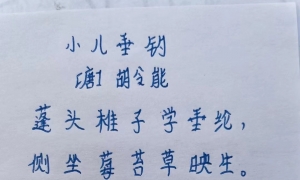 小儿垂钓
[唐] 胡令能
蓬头稚子学垂纶，
侧坐莓苔草映生。